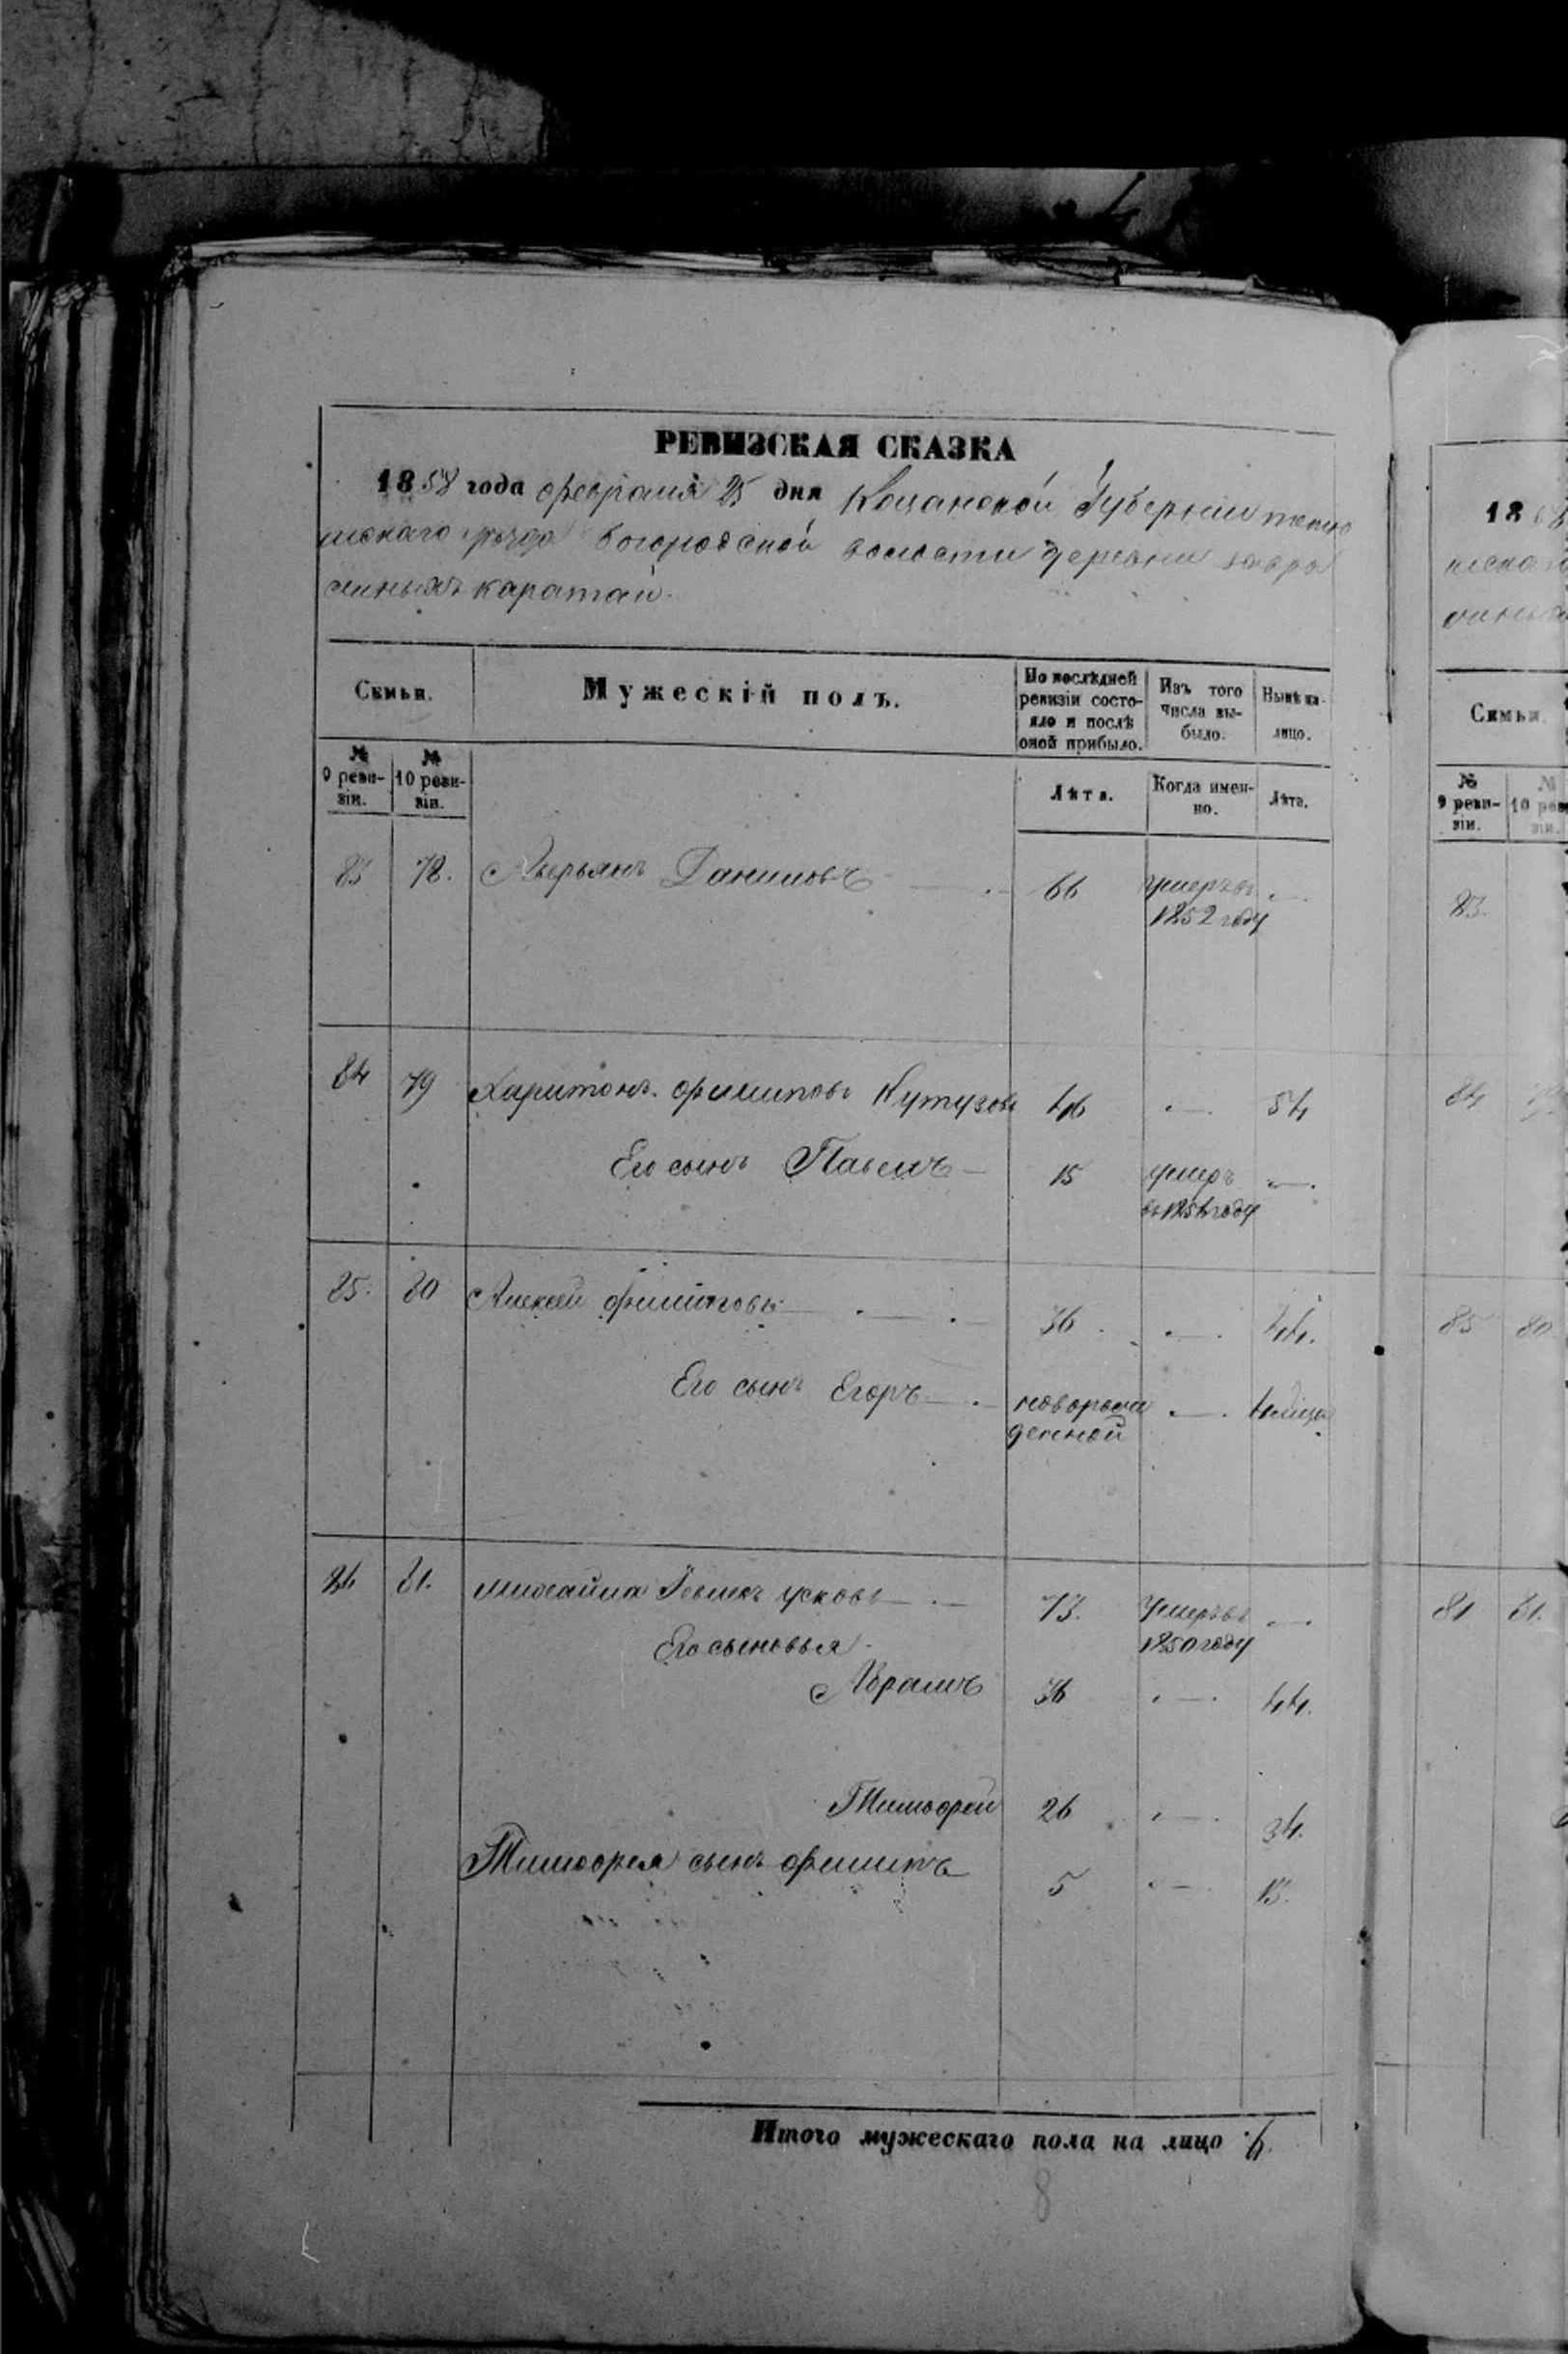 РЕВИЗСКАЯ СКАЗКА
1858 года февраля 25 дня Казанской Губернии тетю
шскаго уезда Богородской волости деревни заовра
жныхъ каратаи.
Семьи.
Мужескій полъ.
По послѣдней ревизіи состо-
яло и послѣ
оной прибыло.
Изъ того
числа вы-
было.
Нынѣ на-
лицо.
№
9 реви-
зіи.
№
10 реви-
зіи.
Лѣта.
Когда имен-
но.
Лѣта.
83 78. Аверьянъ Даниловъ 66 умеръ въ
1852 году
84 79 Харитонъ Филиповъ Кутузовъ 46 54
Его сынъ Павелъ 15 умеръ
въ 1854 году
85. 80 Алексей Филиповъ 36 44.
Его сынъ Егоръ новорож
денной
86 81. Михайла усковъ 73. Умеръ въ
1850 году
Его сыновья
Абрамъ 36 44.
Тимофей 26 34.
Тимофея сынъ Филипъ 5 13.
Итого мужескаго пола на лицо
8
18
Семьи.
№
9 реви-
зіи.
№
10 реви-
зіи.
83.
84
85 80
81 81.